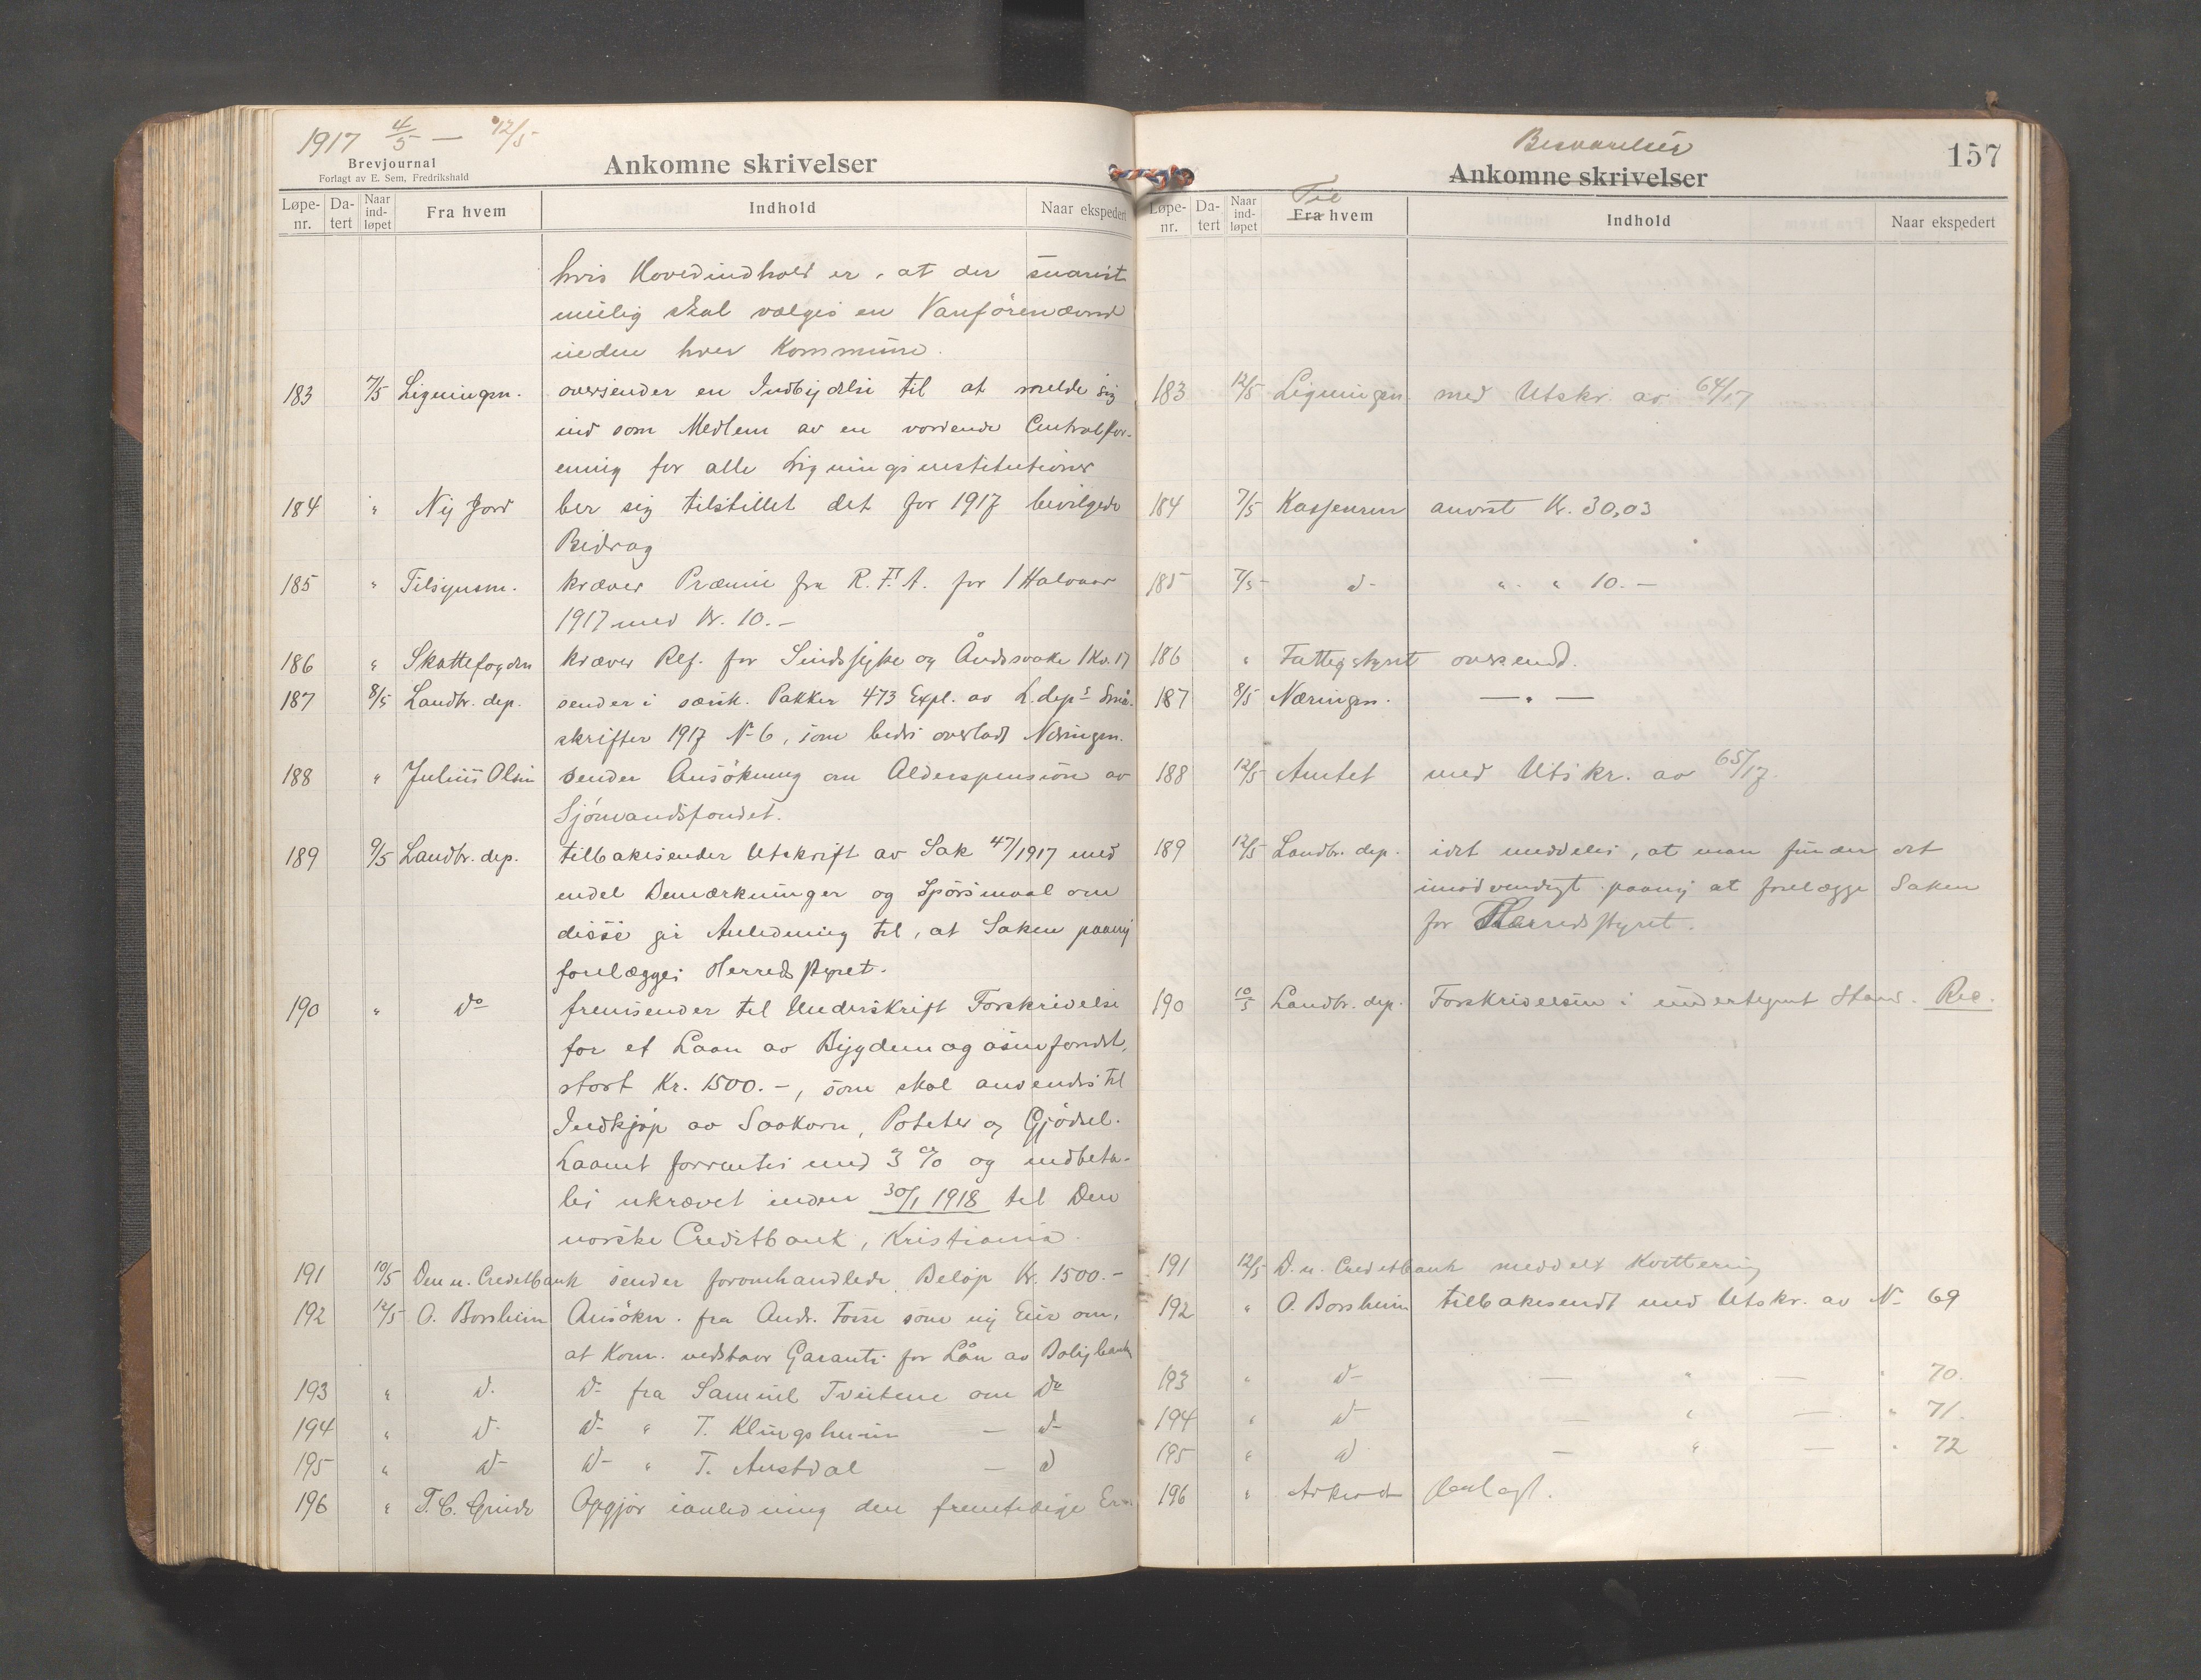 1917 4/5 — 12/5
Brevjournal
Forlagt av E. Sem, Fredrikshald
Ankomne skrivelser
Løpe-nr. Da-tert Naar ind-løpet Fra hvem Indhold Naar ekspedert
hvis Hovedindhold er, at der snarest
mulig skal vælges en Vanförenævnd
inden hver Kommune.
183 7/5 Ligningsn. oversender en Indbydelse til at melde sig
ind som Medlem av en vordende Centralfor-
ening for alle Ligningsinstitutioner
184 " Ny Jord ber sig tilstillet det for 1917 bevilgede
Bidrag
185 " Tilsynsm. kræver Præmie fra R.F.A. for 1 Halvaar
1917 med Kr. 10.-
186 " Skattefogden kræver Ref. for Sindssyke og Åndssvake 1 Kv. 17
187 8/5 Landbr. dep. sender i særsk. Pakker 473 Expl. av L.deps Små-
skrifter 1917 No 6, som bedes overladt Næringsn.
188 " Julius Olsen sender Ansökning om Alderspension av
Sjömandsfondet.
189 9/5 Landbr. dep. tilbakesender Utskrift av Sak 47/1917 med
endel Bemærkninger og Spörsmaal om
disse gir Anledning til, at Saken paany
forelægges Herredsstyret.
190 " do fremsender til Underskrift Forskrivelse
for et Laan av Bygdemagasinfondet,
stort Kr. 1500.-, som skal anvendes til
Indkjöp av Saakorn, Poteter og Gjödsel.
Laanet forrentes med 3 % og indbeta-
les ukrævet inden 30/1 1918 til Den
norske Creditbank, Kristiania.
191 10/5 Den n. Creditbank sender foromhandlede Belöp Kr. 1500.-
192 12/5 O. Borsheim Ansökn. fra Andr. Fosse som ny Eier om,
at Kom. vedstaar Garanti for Lån av Boligbank
193 " do do fra Samuel Tveitene om do
194 " do do " T. Klungsheim — do
195 " do do " T. Austdal — do
196 " T. C. Grinde Opgjör ianledning den fremtidige
Besvarelser
Ankomne skrivelser
157
Løpe-nr. Da-tert Naar ind-løpet Fra Til hvem Indhold Naar ekspedert
183 12/5 Ligningsn. med Utskr. av 64/17
184 7/5 Kassereren anvist Kr. 30,03
185 7/5 do " " 10.-
186 " Fattigstyret oversendt.
187 8/5 Næringsn. — " —
188 12/5 Amtet med Utskr. av 65/17
189 12/5 Landbr. dep. idet meddeles, at man finder det
unödvendigt paany at forelægge Saken
for Herredsstyret.
190 10/5 Landbr. dep. Forskrivelsen i undertegnet Stand. Rec.
191 12/5 D. n. Creditbank meddelt Kvittering
192 " O. Borsheim tilbakesendt med Utskr. av No 69
193 " do — " — " 70.
194 " do — " — " 71.
195 " do — " — " 72
196 " Arkivet Henlagt.